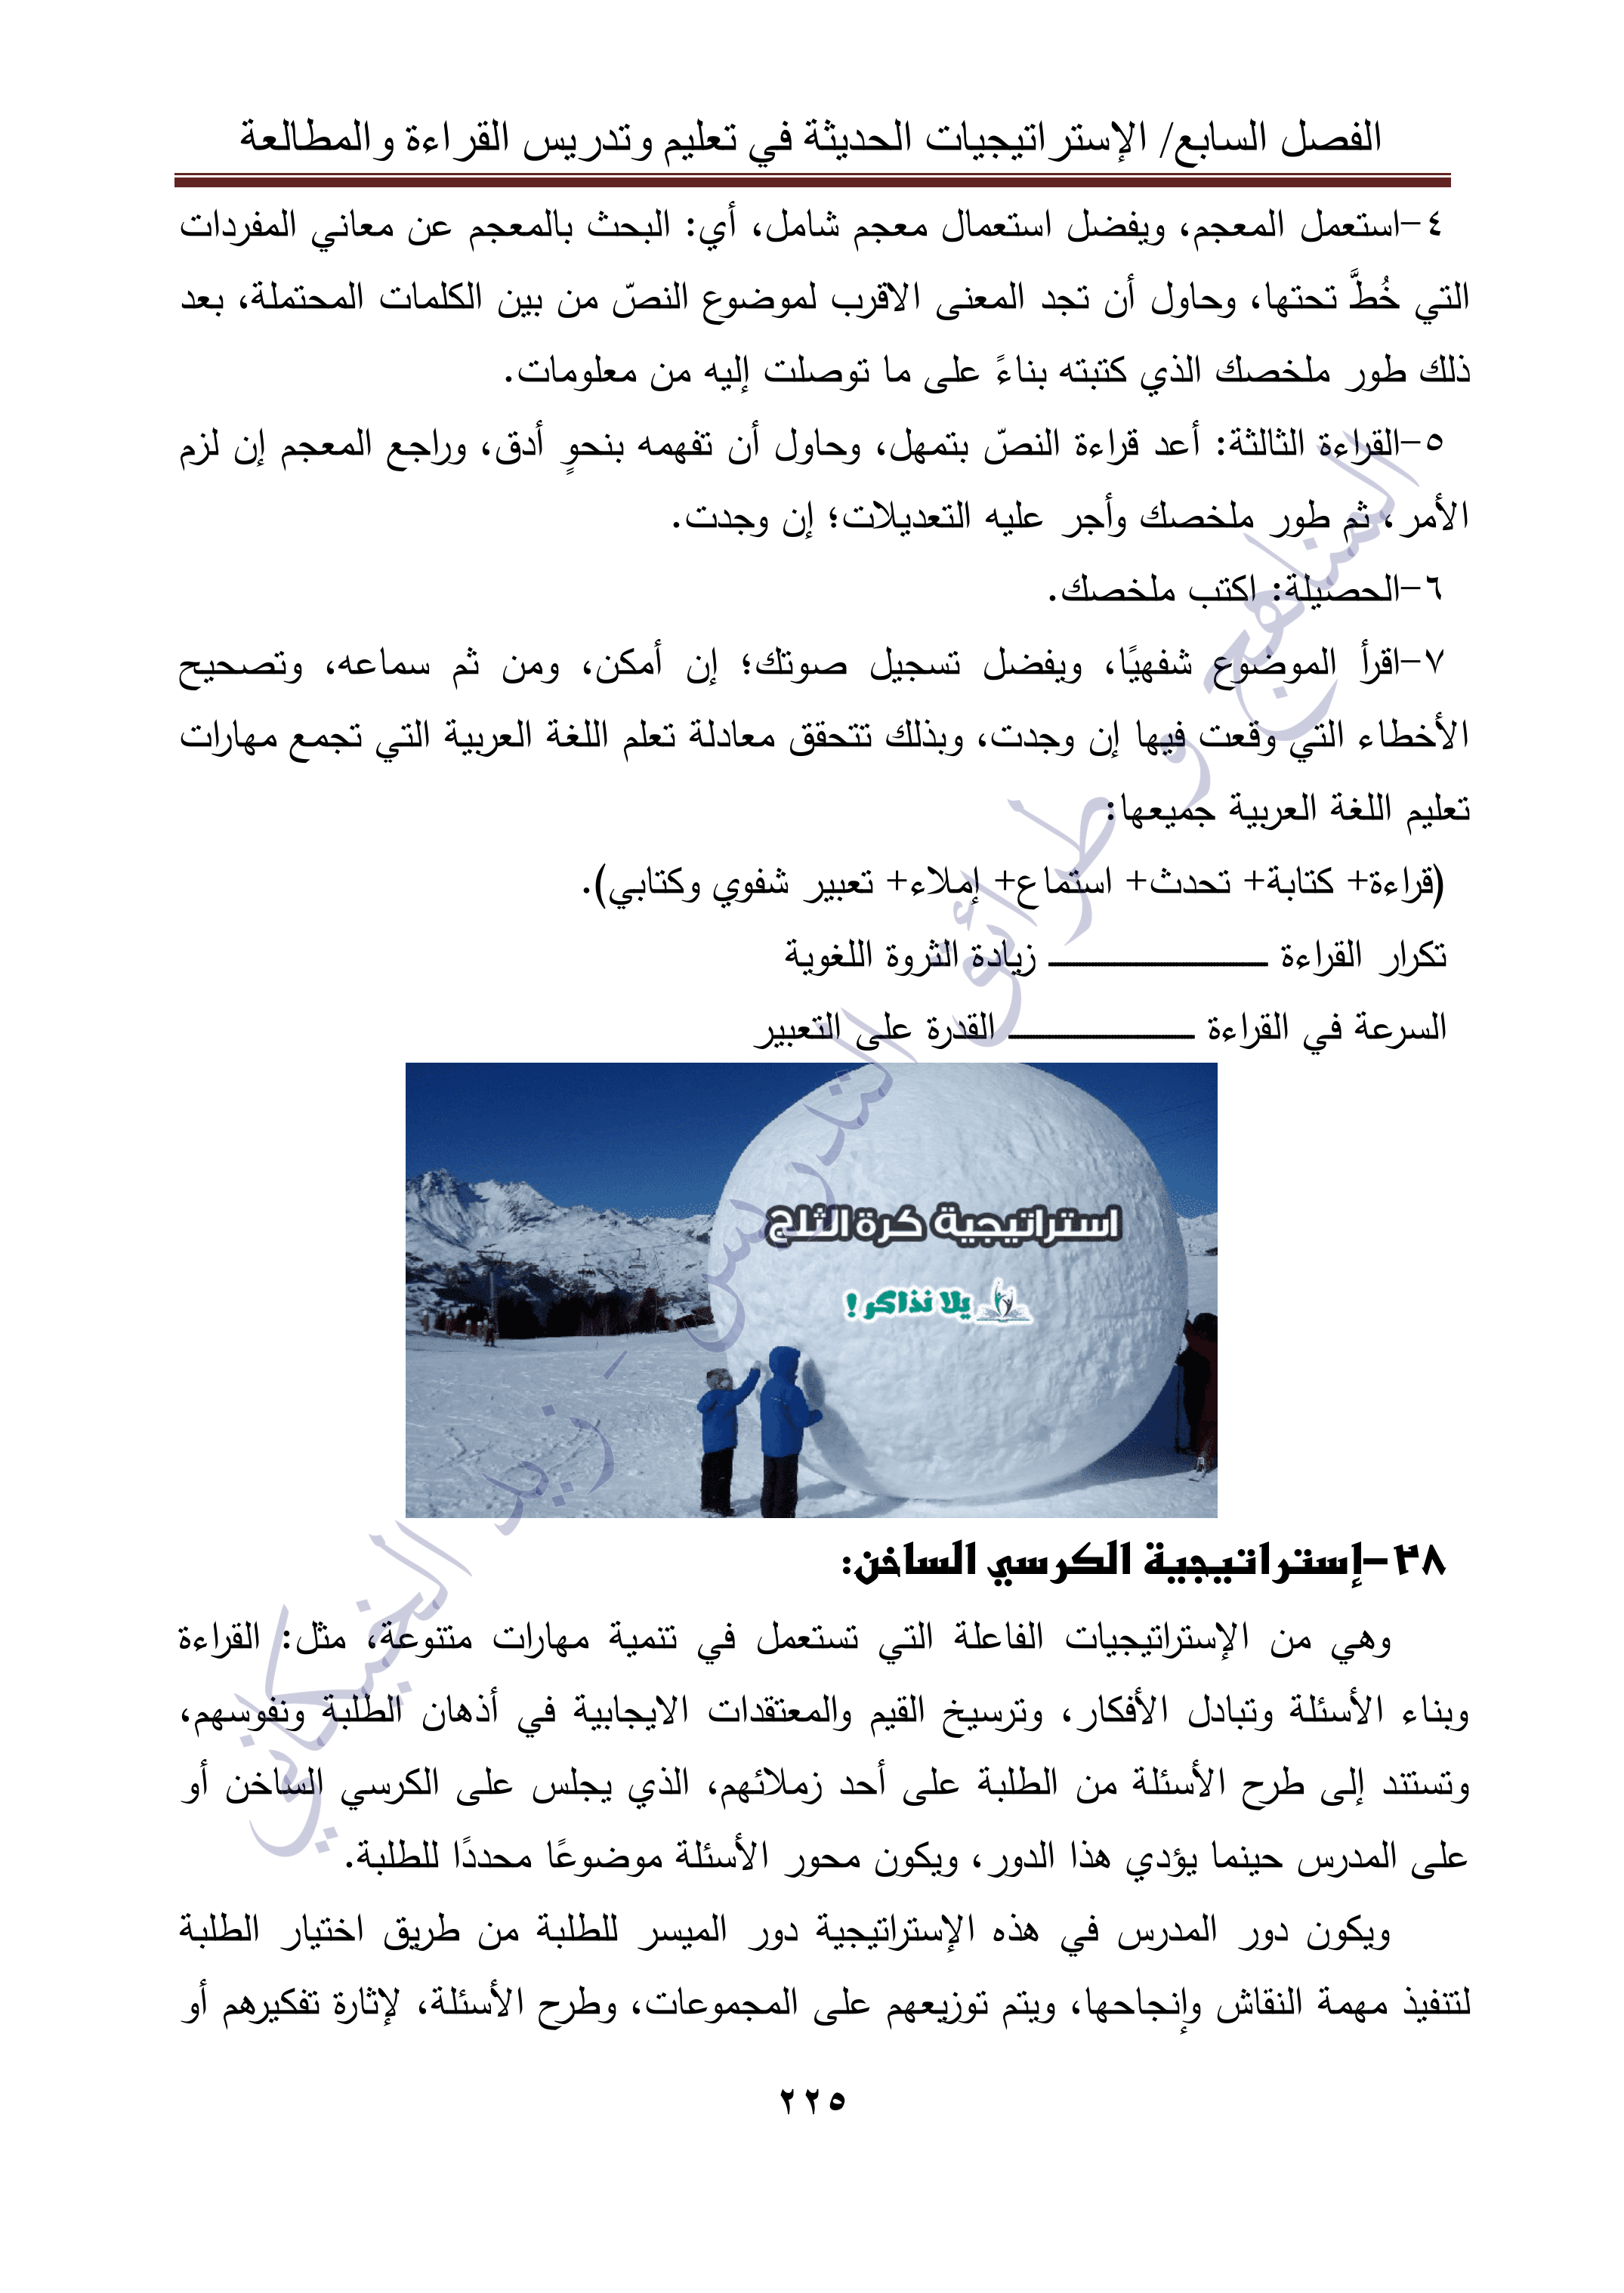 الفصل السابع/ الإستراتيجيات الحديثة في تعليم وتدريس القراءة والمطالعة
٤-استعمل المعجم، ويفضل استعمال معجم شامل، أي: البحث بالمعجم عن معاني المفردات
التي خُطَّ تحتها، وحاول أن تجد المعنى الاقرب لموضوع النصّ من بين الكلمات المحتملة، بعد
ذلك طور ملخصك الذي كتبته بناءً على ما توصلت إليه من معلومات.
٥-القراءة الثالثة: أعد قراءة النصّ بتمهل، وحاول أن تفهمه بنحوٍ أدق، وراجع المعجم إن لزم
الأمر، ثم طور ملخصك وأجر عليه التعديلات؛ إن وجدت.
٦-الحصيلة: اكتب ملخصك.
٧-اقرأ الموضوع شفهيًا، ويفضل تسجيل صوتك؛ إن أمكن، ومن ثم سماعه، وتصحيح
الأخطاء التي وقعت فيها إن وجدت، وبذلك تتحقق معادلة تعلم اللغة العربية التي تجمع مهارات
تعليم اللغة العربية جميعها:
(قراءة+ كتابة+ تحدث+ استماع+ إملاء+ تعبير شفوي وكتابي).
تكرار القراءة ــــــــــــــــــــ زيادة الثروة اللغوية
السرعة في القراءة ـــــــــــــــــ القدرة على التعبير
استراتيجية كرة الثلج
يلا نذاكر !
٣٨-إستراتيجية الكرسي الساخن:
وهي من الإستراتيجيات الفاعلة التي تستعمل في تنمية مهارات متنوعة، مثل: القراءة
وبناء الأسئلة وتبادل الأفكار، وترسيخ القيم والمعتقدات الايجابية في أذهان الطلبة ونفوسهم،
وتستند إلى طرح الأسئلة من الطلبة على أحد زملائهم، الذي يجلس على الكرسي الساخن أو
على المدرس حينما يؤدي هذا الدور، ويكون محور الأسئلة موضوعًا محددًا للطلبة.
ويكون دور المدرس في هذه الإستراتيجية دور الميسر للطلبة من طريق اختيار الطلبة
لتنفيذ مهمة النقاش وإنجاحها، ويتم توزيعهم على المجموعات، وطرح الأسئلة، لإثارة تفكيرهم أو
٢٢٥
المناهج و طرائق التدريس - زيد الخيكاني